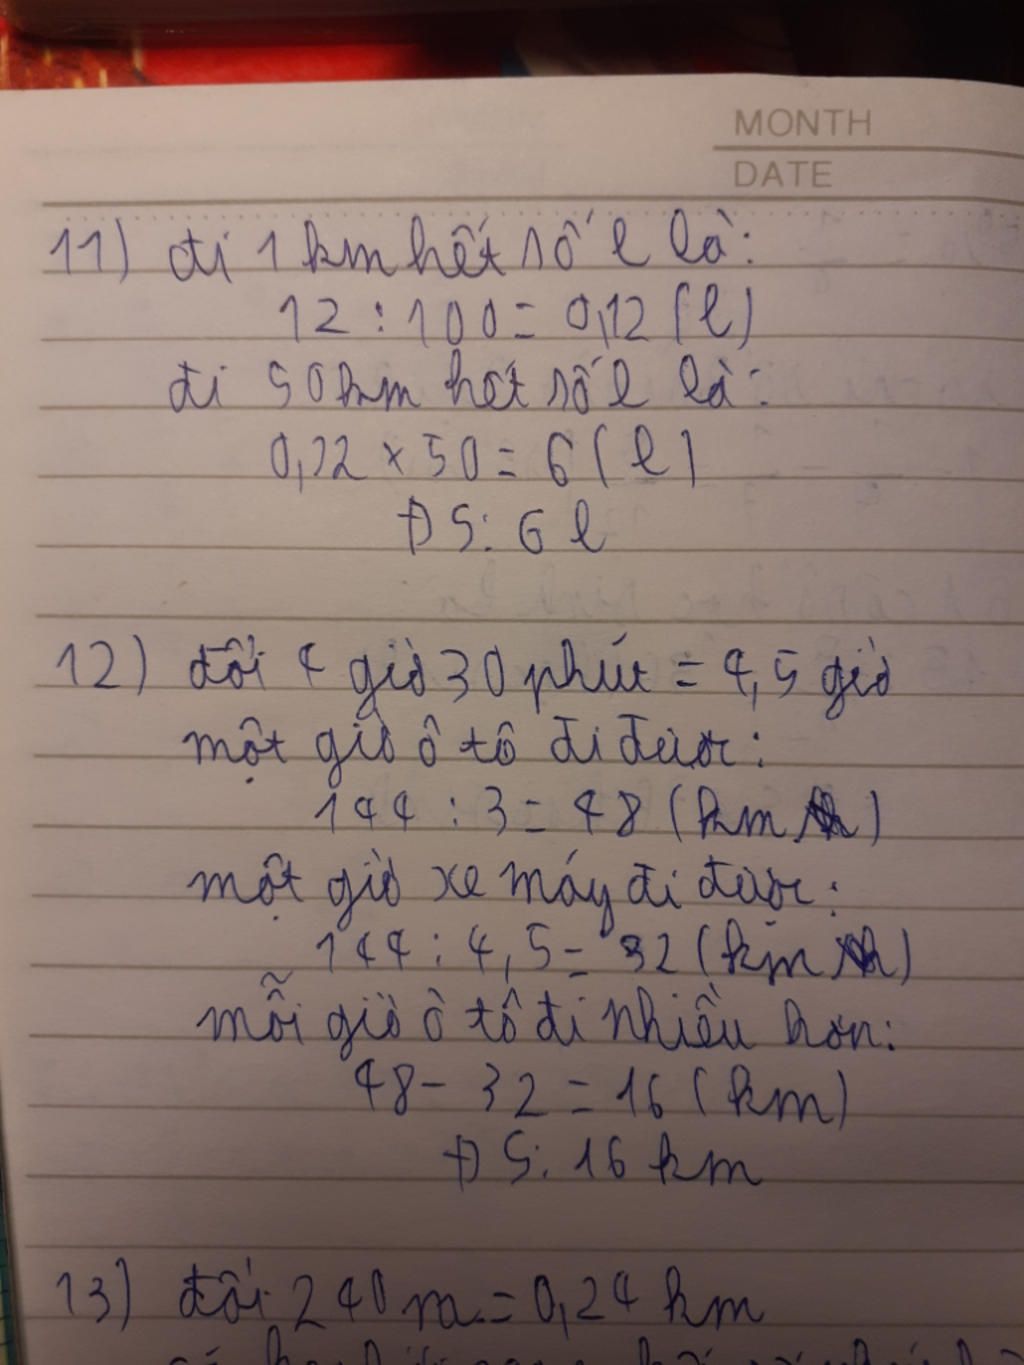 MONTH
DATE
11) đi 1 km hết số l là:
12 : 100 = 0,12 (l)
đi 50 km hết số l là:
0,12 × 50 = 6 (l)
ĐS: 6 l
12) đổi 4 giờ 30 phút = 4,5 giờ
một giờ ô tô đi được:
144 : 3 = 48 (km)
một giờ xe máy đi được:
144 : 4,5 = 32 (km)
mỗi giờ ô tô đi nhiều hơn:
48 - 32 = 16 (km)
ĐS: 16 km
13) đổi 240 m = 0,24 km